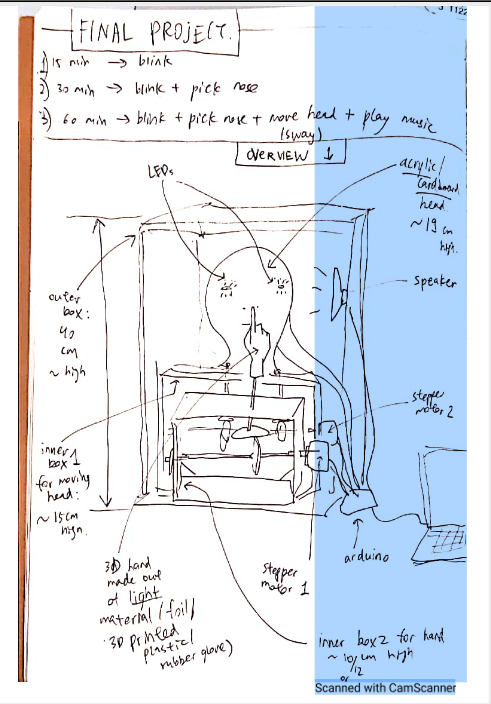 FINAL PROJECT.
1) 15 min → blink
2) 30 min → blink + pick nose
3) 60 min → blink + pick nose + move head + play music
(sway)
OVERVIEW ↓
LEDs
acrylic/
cardboard
head
~19 cm
high.
speaker
outer
box:
40
cm
~ high
stepper
motor 2
inner
box 1
for moving
head:
~15cm
high.
arduino
3D hand
made out
of light
material (foil/
3D printed
plastic/
rubber glove)
stepper
motor 1
inner box 2 for hand
~ 10 cm high
or 12
Scanned with CamScanner